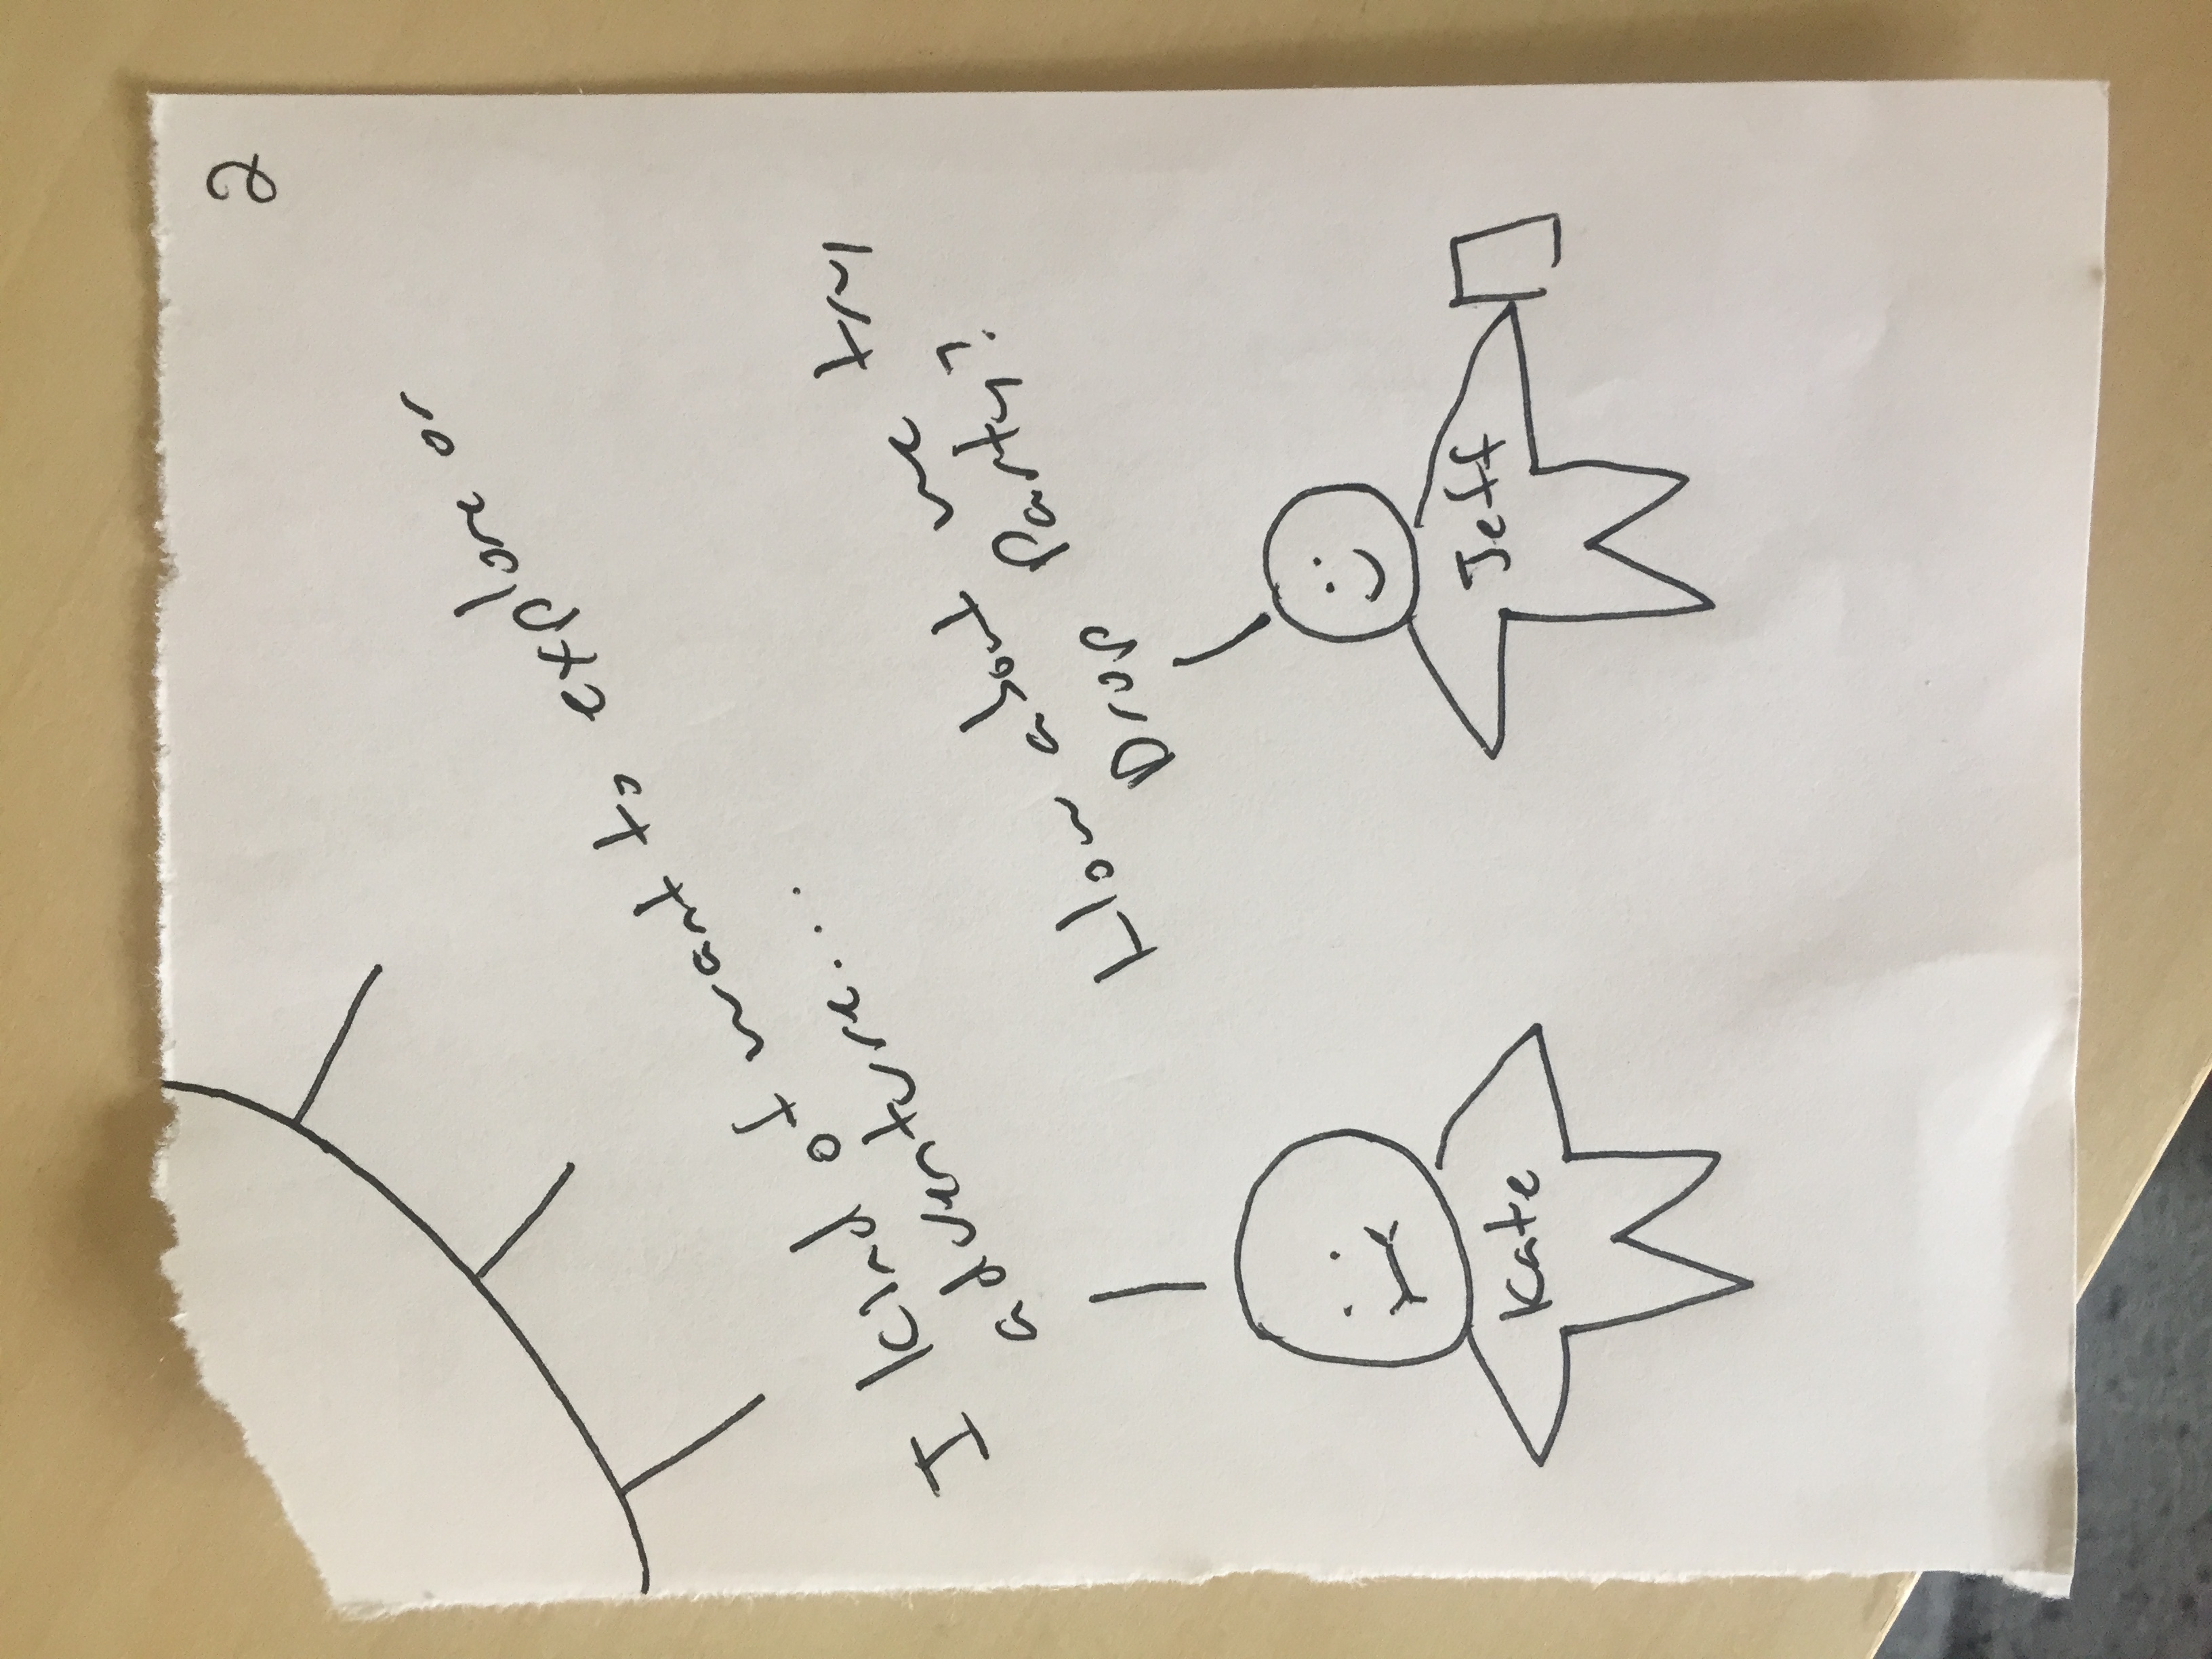 2
I kind of want to explore or
adventure...
How about we try
Drop Party?
Kate
Jeff